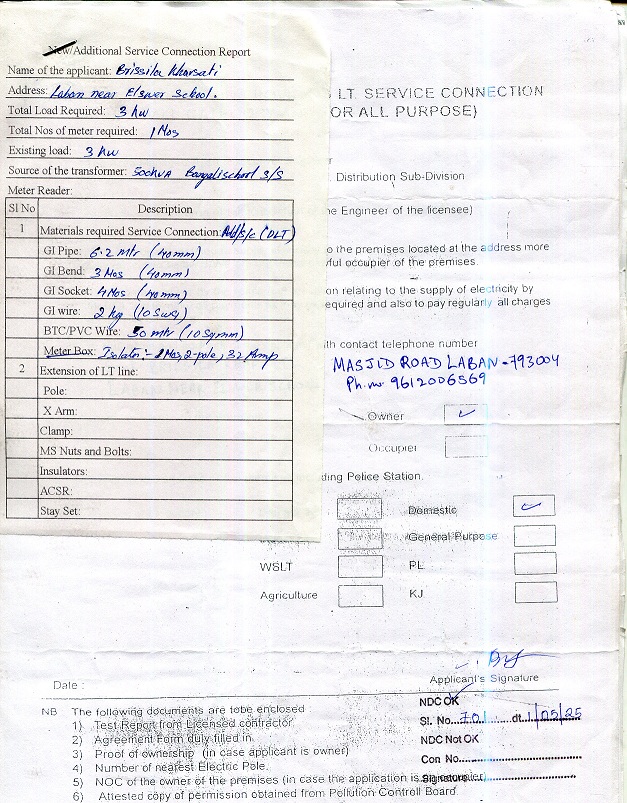 New/Additional Service Connection Report
Name of the applicant: Brissila Kharsati
Address: Laban near Elswer School.
Total Load Required: 3 kw
Total Nos of meter required: 1 Nos
Existing load: 3 kw
Source of the transformer: Bengali school S/S
Meter Reader:
Sl No Description
1 Materials required Service Connection: Add/s/c (DLT)
GI Pipe: 6.2 Mtr (40mm)
GI Bend: 3 Nos (40mm)
GI Socket: 4 Nos (40mm)
GI wire: 2 kg (10 Swg)
BTC/PVC Wire: 50 mtr (10 Sqmm)
Meter Box: Isolator:- Nos, 2-pole, 32 Amp
2 Extension of LT line:
Pole:
X Arm:
Clamp:
MS Nuts and Bolts:
Insulators:
ACSR:
Stay Set:
LT SERVICE CONNECTION
OR ALL PURPOSE)
Distribution Sub-Division
e Engineer of the licensee)
o the premises located at the address more
ful occupier of the premises.
on relating to the supply of electricity by
equired and also to pay regularly all charges
ith contact telephone number
MASJID ROAD LABAN - 793004
Ph. no 9612006569
Owner ✓
Occupier
ding Police Station.
Domestic ✓
General Purpose
WSLT PL
Agriculture KJ
Applicant's Signature
Date :
NDC OK
Sl. No....701.....dt.1/05/25
NDC Not OK
Con No.
Signature
NB The following documents are tobe enclosed :
1) Test Report from Licensed contractor
2) Agreement Form duly filled in.
3) Proof of ownership (in case applicant is owner)
4) Number of nearest Electric Pole.
5) NOC of the owner of the premises (in case the application is an occupier)
6) Attested copy of permission obtained from Pollution Controll Board